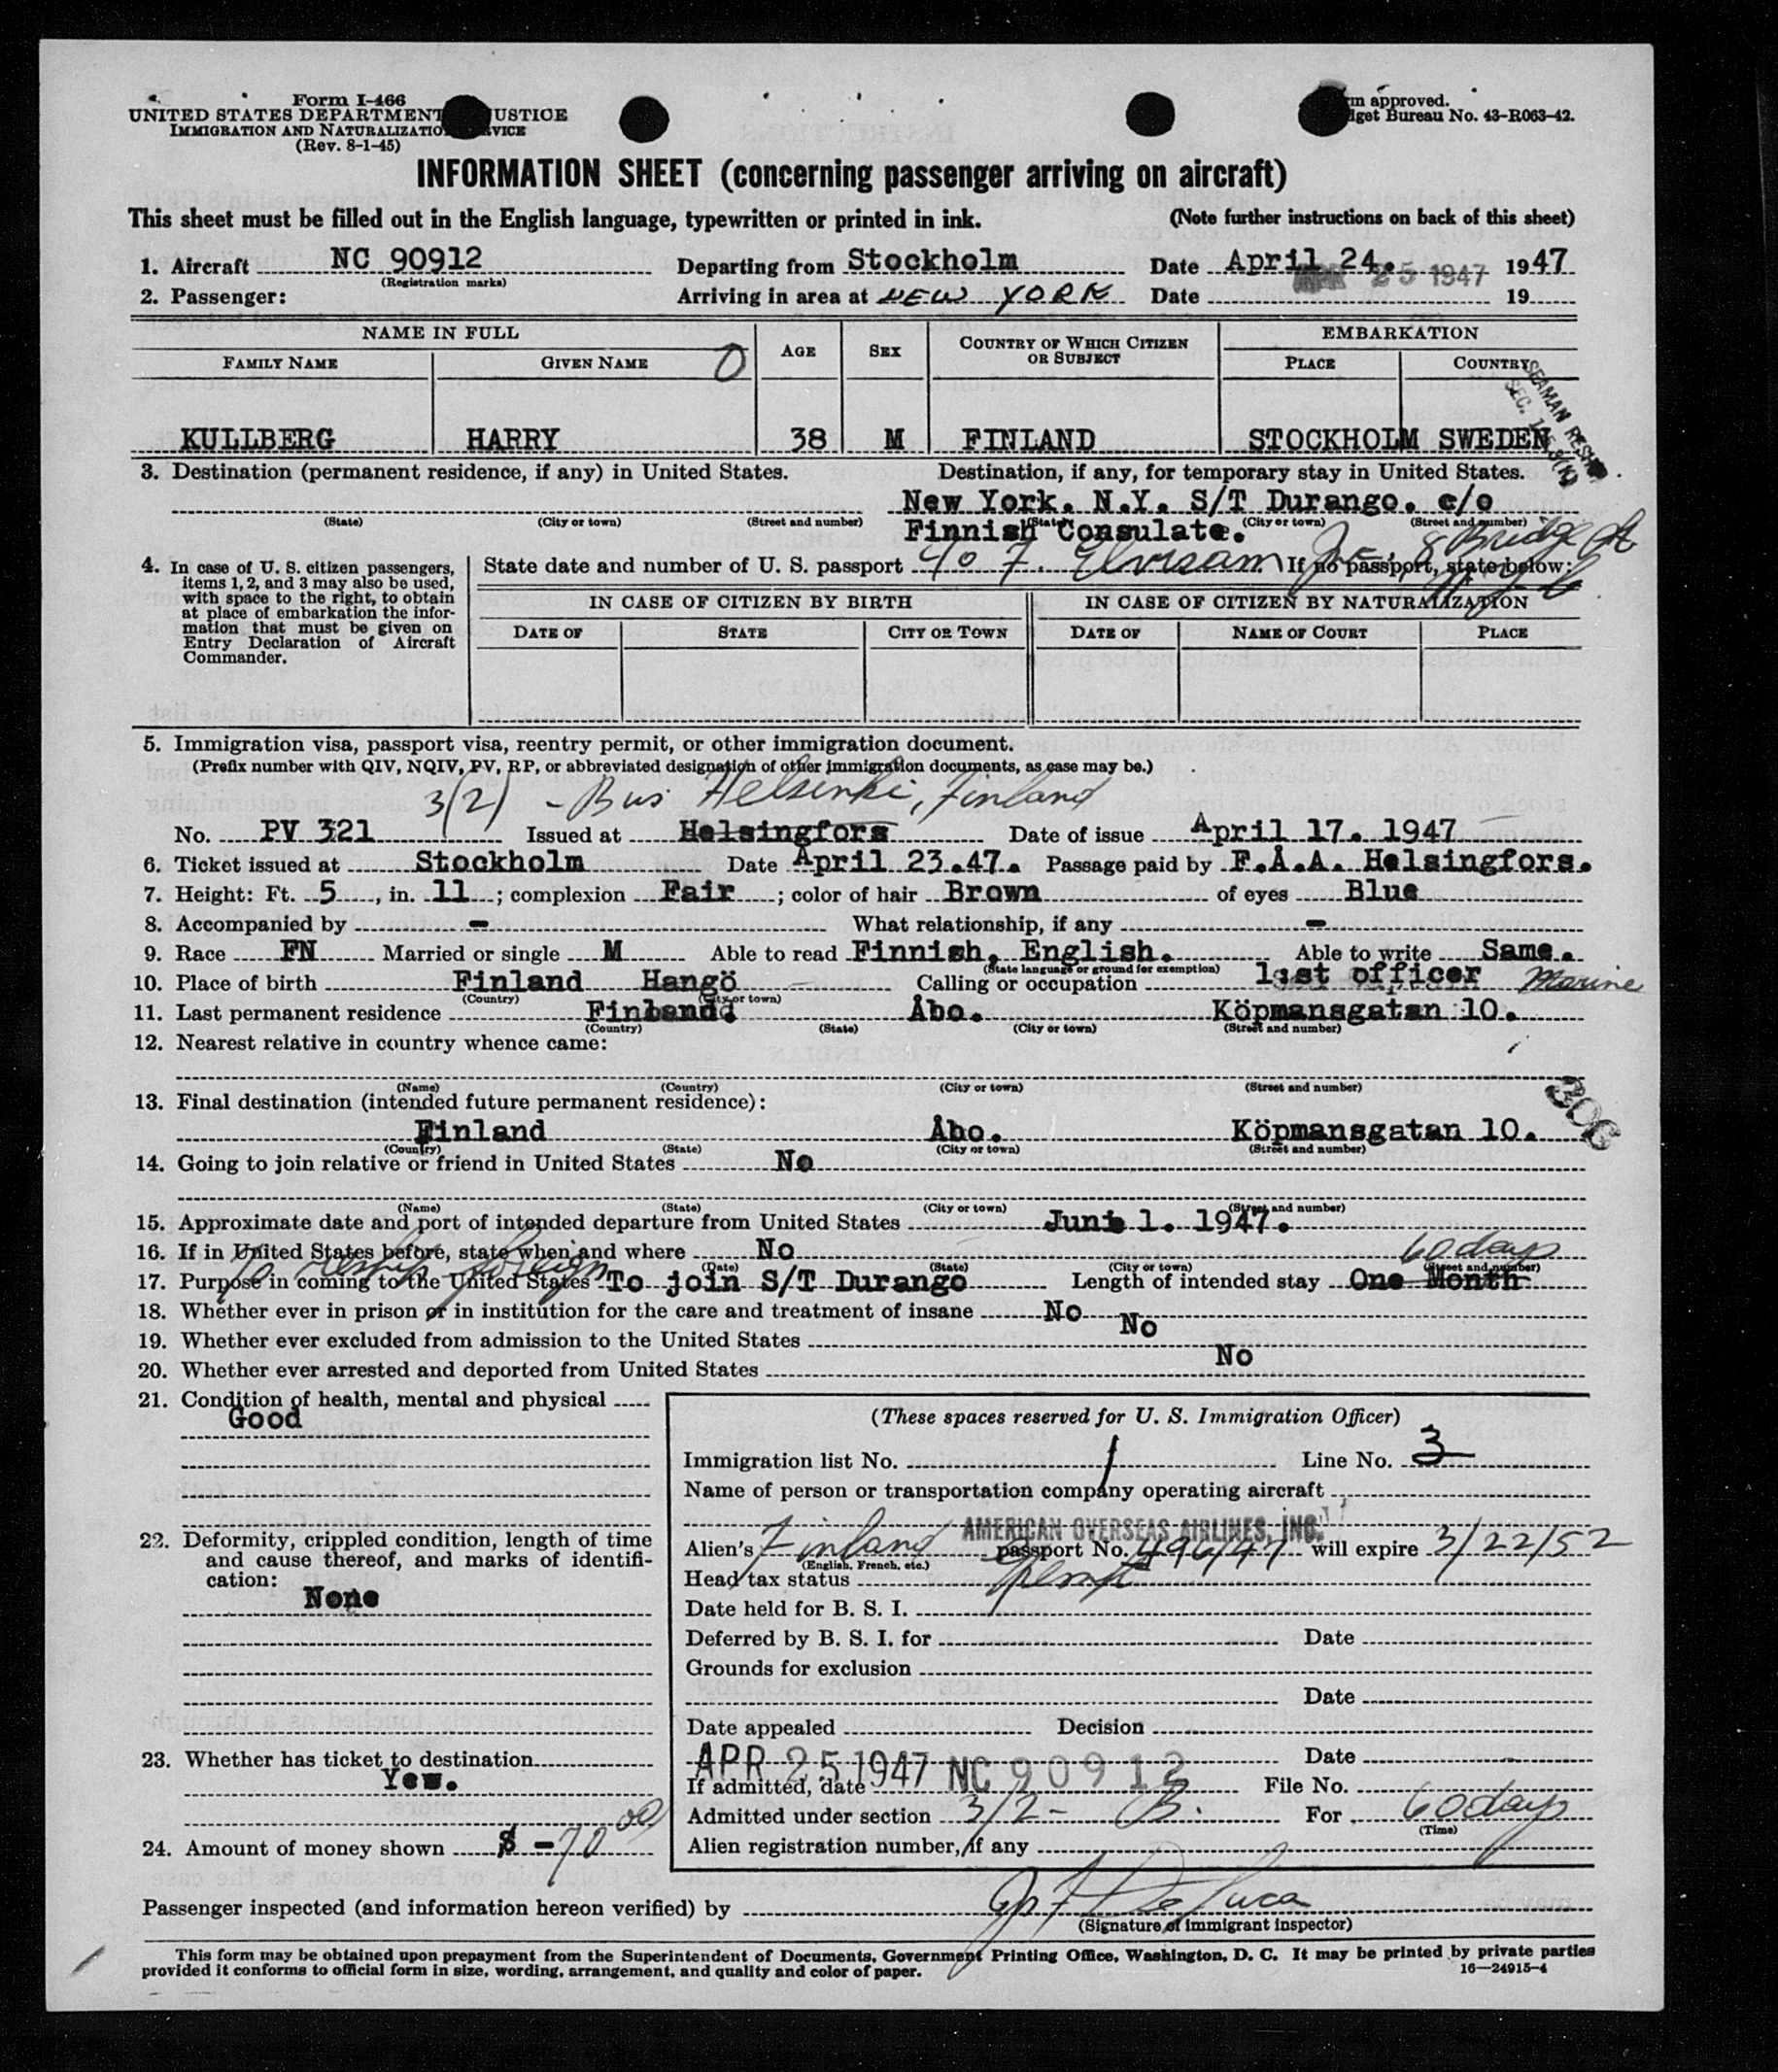 Form I-466
UNITED STATES DEPARTMENT USTICE
IMMIGRATION AND NATURALIZATIO VICE
(Rev. 8-1-45)
m approved.
get Bureau No. 43-R063-42.
INFORMATION SHEET (concerning passenger arriving on aircraft)
This sheet must be filled out in the English language, typewritten or printed in ink. (Note further instructions on back of this sheet)
1. Aircraft NC 90912 Departing from Stockholm Date April 24. 1947
(Registration marks)
25 1947
2. Passenger: Arriving in area at NEW YORK Date 19
NAME IN FULL AGE SEX COUNTRY OF WHICH CITIZEN OR SUBJECT EMBARKATION
FAMILY NAME GIVEN NAME O PLACE COUNTRY
SEAMAN RESHIP
KULLBERG HARRY 38 M FINLAND STOCKHOLM SWEDEN
3. Destination (permanent residence, if any) in United States. Destination, if any, for temporary stay in United States.
New York. N.Y. S/T Durango. c/o
(State) (City or town) (Street and number) (State) (City or town) (Street and number)
Finnish Consulate.
8 Bridge St
4. In case of U. S. citizen passengers, items 1, 2, and 3 may also be used, with space to the right, to obtain at place of embarkation the information that must be given on Entry Declaration of Aircraft Commander.
State date and number of U. S. passport If no passport, state below:
IN CASE OF CITIZEN BY BIRTH IN CASE OF CITIZEN BY NATURALIZATION
DATE OF STATE CITY OR TOWN DATE OF NAME OF COURT PLACE
5. Immigration visa, passport visa, reentry permit, or other immigration document.
(Prefix number with QIV, NQIV, PV, RP, or abbreviated designation of other immigration documents, as case may be.)
3(2) - Bus Helsinki, Finland
No. PV 321 Issued at Helsingfors Date of issue April 17. 1947
6. Ticket issued at Stockholm Date April 23.47. Passage paid by F.Å.A. Helsingfors.
7. Height: Ft. 5, in. 11; complexion Fair; color of hair Brown of eyes Blue
8. Accompanied by - What relationship, if any -
9. Race FN Married or single M Able to read Finnish, English. Able to write Same.
(State language or ground for exemption)
10. Place of birth Finland Hangö Calling or occupation 1:st officer Marine
(Country) (City or town)
11. Last permanent residence Finland. Åbo. Köpmansgatan 10.
(Country) (State) (City or town) (Street and number)
12. Nearest relative in country whence came:
(Name) (Country) (City or town) (Street and number)
13. Final destination (intended future permanent residence):
306
Finland Åbo. Köpmansgatan 10.
(Country) (State) (City or town) (Street and number)
14. Going to join relative or friend in United States No
(Name) (State) (City or town) (Street and number)
15. Approximate date and port of intended departure from United States Juni 1. 1947.
16. If in United States before, state when and where No
(Date) (State) (City or town) (Street and number)
To reship foreign 60 days
17. Purpose in coming to the United States To join S/T Durango Length of intended stay One Month
18. Whether ever in prison or in institution for the care and treatment of insane No
19. Whether ever excluded from admission to the United States No
20. Whether ever arrested and deported from United States No
21. Condition of health, mental and physical
Good
22. Deformity, crippled condition, length of time and cause thereof, and marks of identification:
None
23. Whether has ticket to destination
Yes.
24. Amount of money shown $ -70 00
(These spaces reserved for U. S. Immigration Officer)
Immigration list No. 1 Line No. 3
Name of person or transportation company operating aircraft
AMERICAN OVERSEAS AIRLINES, INC.
Alien's Finland passport No. 496/47 will expire 3/22/52
(English, French, etc.)
Head tax status
Date held for B. S. I.
Deferred by B. S. I. for Date
Grounds for exclusion
Date
Date appealed Decision
Date
APR 25 1947 NC 90912
If admitted, date File No.
Admitted under section 3/2- B. For 60 days
(Time)
Alien registration number, if any
Passenger inspected (and information hereon verified) by
(Signature of immigrant inspector)
This form may be obtained upon prepayment from the Superintendent of Documents, Government Printing Office, Washington, D. C. It may be printed by private parties
provided it conforms to official form in size, wording, arrangement, and quality and color of paper. 16—24915-4